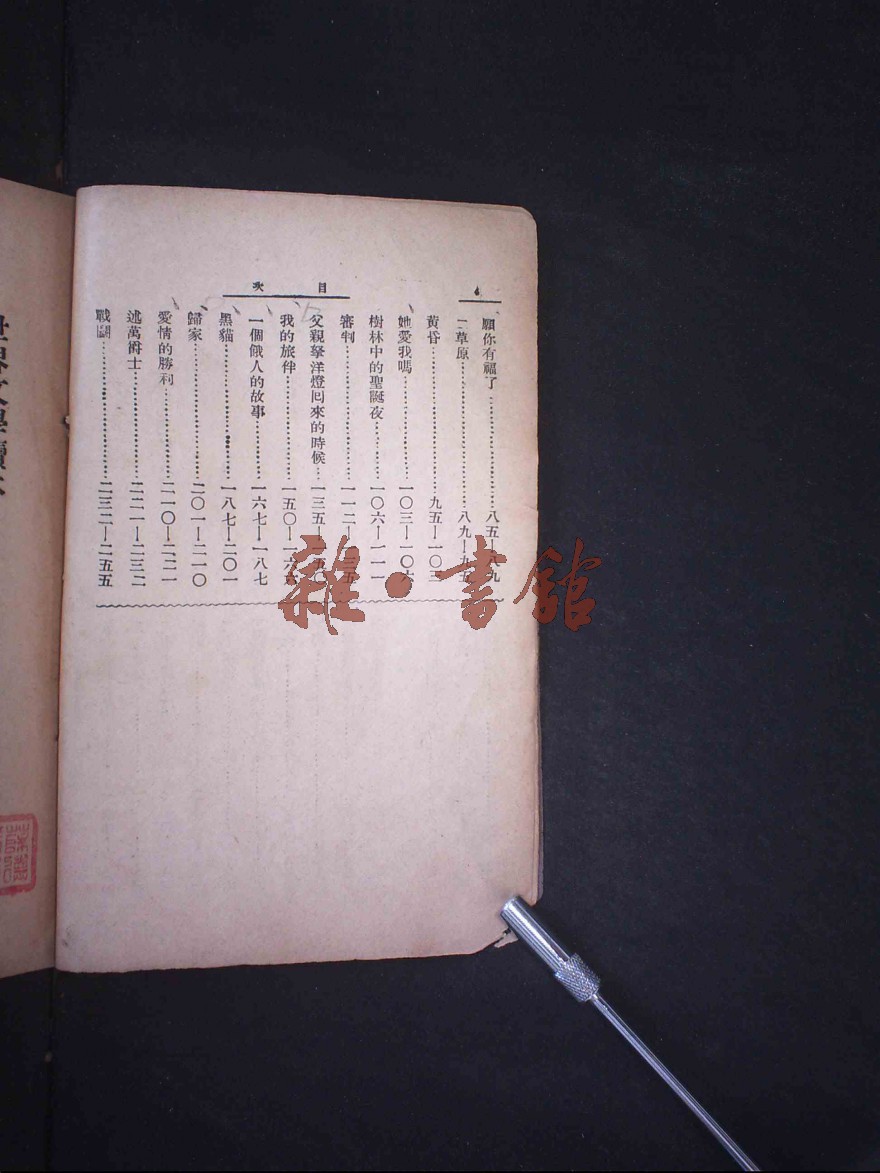 目次
願你有福了……八五—八九
草原……八九—九五
黃昏……九五—一〇三
她愛我嗎……一〇三—一〇六
樹林中的聖誕夜……一〇六—一一一
審判……一一二—一三五
父親拏洋燈回來的時候…一三五—一五〇
我的旅伴……一五〇—一六六
一個俄人的故事……一六七—一八七
黑貓……一八七—二〇一
歸家……二〇一—二一〇
愛情的勝利……二一〇—二二一
逃萬爵士……二二一—二三二
戰鬭……二三二—二五五
世界文學讀本
雜·書館